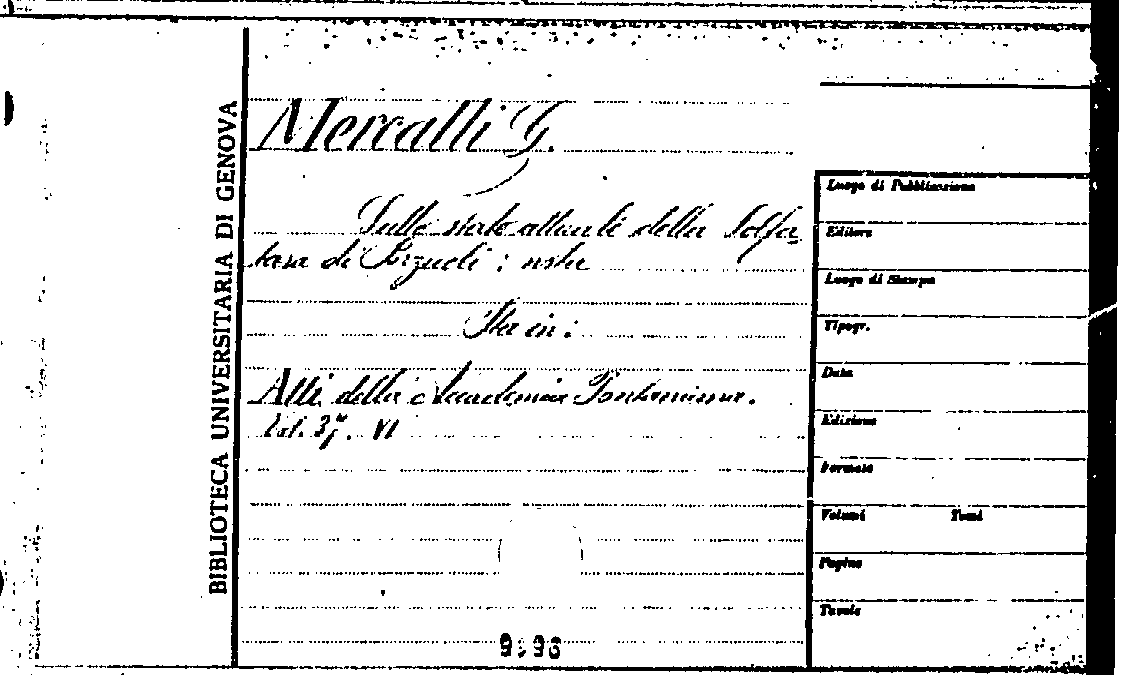 BIBLIOTECA UNIVERSITARIA DI GENOVA
Mercalli G.
Sullo stato attuale della Solfa-
tara di Pozzuoli : nota
Sta in :
Atti della Accademia Pontaniana.
Vol. 37. VI
Luogo di Pubblicazione
Editore
Luogo di Stampa
Tipogr.
Data
Edizione
Formato
Volumi Tomi
Pagine
Tavole